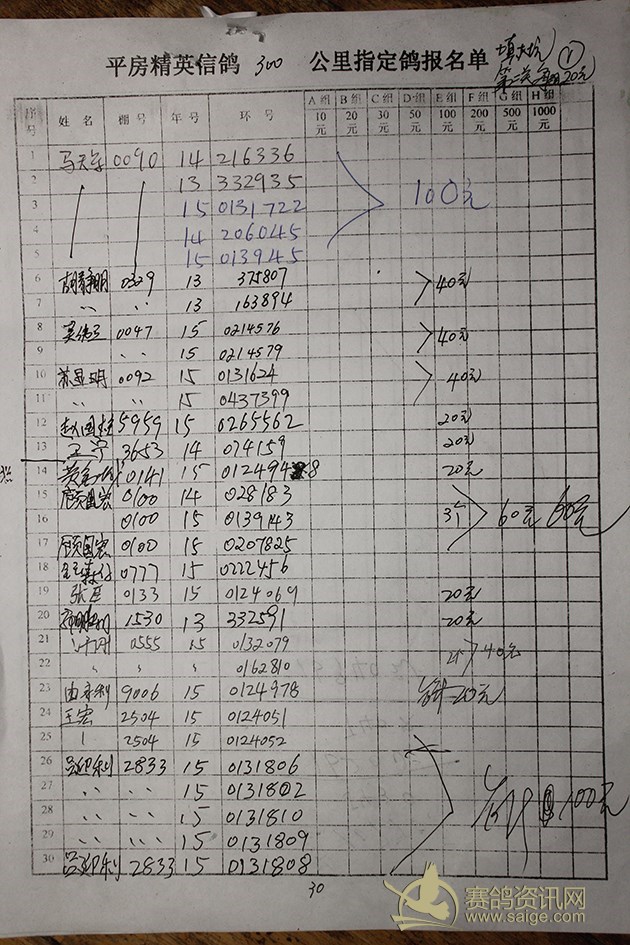 平房精英信鸽 300 公里指定鸽报名单 ①
第二关 每羽20元
序号 姓名 棚号 年号 环号 A组10元 B组20元 C组30元 D组50元 E组100元 F组200元 G组500元 H组1000元
1 0090 14 216336
2 13 332935
3 15 0131722 100元
4 14 206045
5 15 013945
6 0329 13 375807 40元
7 〃 〃 13 163894
8 0047 15 0214576 40元
9 〃 〃 15 0214579
10 苏显明 0092 15 0131624 40元
11 〃 〃 15 0437399
12 5959 15 0265562 20元
13 王宁 3653 14 074159 20元
14 0141 15 012494 8 20元
15 顾国宏 0100 14 028183
16 0100 15 0139143 3个 60元 60元
17 顾国宏 0100 15 0207825
18 0777 15 0222456
19 0133 15 0124069 20元
20 1530 13 332591 20元
21 0555 15 0132079
22 〃 〃 0162810 40元
23 9006 15 0124978 20元
24 王宏 2504 15 0124051
25 2504 15 0124052
26 吕迎利 2833 15 0131806
27 〃 〃 15 0131802
28 〃 〃 15 0131810 100元
29 〃 〃 15 0131809
30 吕迎利 2833 15 0131808
30
赛鸽资讯网
www.saige.com